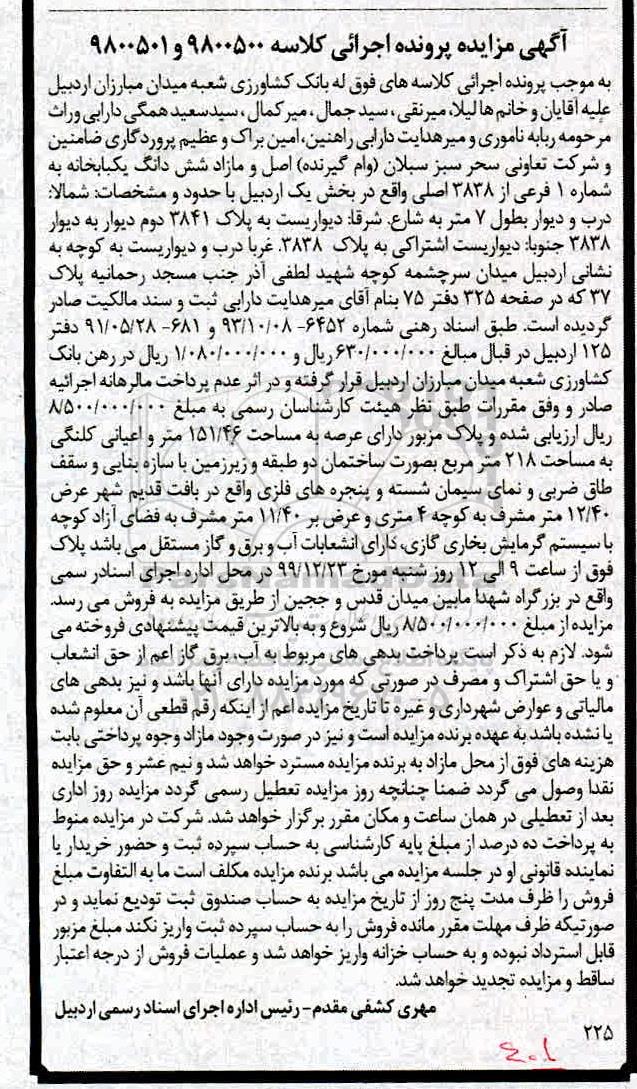 آگهی مزایده پرونده اجرائی کلاسه ۹۸۰۰۵۰۰ و ۹۸۰۰۵۰۱
به موجب پرونده اجرائی کلاسه های فوق له بانک کشاورزی شعبه میدان مبارزان اردبیل
علیه آقایان و خانم ها لیلا، میرنقی، سید جمال، میرکمال، سیدسعید همگی دارابی وراث
مرحومه ربابه ناموری و میرهدایت دارابی راهنین، امین براک و عظیم پروردگاری ضامنین
و شرکت تعاونی سحر سبز سبلان (وام گیرنده) اصل و مازاد شش دانگ یکبابخانه به
شماره ۱ فرعی از ۳۸۳۸ اصلی واقع در بخش یک اردبیل با حدود و مشخصات: شمالا:
درب و دیوار بطول ۷ متر به شارع. شرقا: دیواریست به پلاک ۳۸۴۱ دوم دیوار به دیوار
۳۸۳۸ جنوبا: دیواریست اشتراکی به پلاک ۳۸۳۸. غربا درب و دیواریست به کوچه به
نشانی اردبیل میدان سرچشمه کوچه شهید لطفی آذر جنب مسجد رحمانیه پلاک
۳۷ که در صفحه ۳۲۵ دفتر ۷۵ بنام آقای میرهدایت دارابی ثبت و سند مالکیت صادر
گردیده است. طبق اسناد رهنی شماره ۶۴۵۲- ۹۳/۱۰/۰۸ و ۶۸۱- ۹۱/۰۵/۲۸ دفتر
۱۲۵ اردبیل در قبال مبالغ ۶۳۰/۰۰۰/۰۰۰ ریال و ۱/۰۸۰/۰۰۰/۰۰۰ ریال در رهن بانک
کشاورزی شعبه میدان مبارزان اردبیل قرار گرفته و در اثر عدم پرداخت مالرهانه اجرائیه
صادر و وفق مقررات طبق نظر هیئت کارشناسان رسمی به مبلغ ۸/۵۰۰/۰۰۰/۰۰۰
ریال ارزیابی شده و پلاک مزبور دارای عرصه به مساحت ۱۵۱/۴۶ متر و اعیانی کلنگی
به مساحت ۲۱۸ متر مربع بصورت ساختمان دو طبقه و زیرزمین با سازه بنایی و سقف
طاق ضربی و نمای سیمان شسته و پنجره های فلزی واقع در بافت قدیم شهر عرض
۱۲/۴۰ متر مشرف به کوچه ۴ متری و عرض بر ۱۱/۴۰ متر مشرف به فضای آزاد کوچه
با سیستم گرمایش بخاری گازی، دارای انشعابات آب و برق و گاز مستقل می باشد پلاک
فوق از ساعت ۹ الی ۱۲ روز شنبه مورخ ۹۹/۱۲/۲۳ در محل اداره اجرای اسنادر سمی
واقع در بزرگراه شهدا مابین میدان قدس و ججین از طریق مزایده به فروش می رسد.
مزایده از مبلغ ۸/۵۰۰/۰۰۰/۰۰۰ ریال شروع و به بالاترین قیمت پیشنهادی فروخته می
شود. لازم به ذکر است پرداخت بدهی های مربوط به آب، برق گاز اعم از حق انشعاب
و یا حق اشتراک و مصرف در صورتی که مورد مزایده دارای آنها باشد و نیز بدهی های
مالیاتی و عوارض شهرداری و غیره تا تاریخ مزایده اعم از اینکه رقم قطعی آن معلوم شده
یا نشده باشد به عهده برنده مزایده است و نیز در صورت وجود مازاد وجوه پرداختی بابت
هزینه های فوق از محل مازاد به برنده مزایده مسترد خواهد شد و نیم عشر و حق مزایده
نقدا وصول می گردد ضمنا چنانچه روز مزایده تعطیل رسمی گردد مزایده روز اداری
بعد از تعطیلی در همان ساعت و مکان مقرر برگزار خواهد شد. شرکت در مزایده منوط
به پرداخت ده درصد از مبلغ پایه کارشناسی به حساب سپرده ثبت و حضور خریدار یا
نماینده قانونی او در جلسه مزایده می باشد برنده مزایده مکلف است ما به التفاوت مبلغ
فروش را ظرف مدت پنج روز از تاریخ مزایده به حساب صندوق ثبت تودیع نماید و در
صورتیکه ظرف مهلت مقرر مانده فروش را به حساب سپرده ثبت واریز نکند مبلغ مزبور
قابل استرداد نبوده و به حساب خزانه واریز خواهد شد و عملیات فروش از درجه اعتبار
ساقط و مزایده تجدید خواهد شد.
مهری کشفی مقدم- رئیس اداره اجرای اسناد رسمی اردبیل
۲۲۵